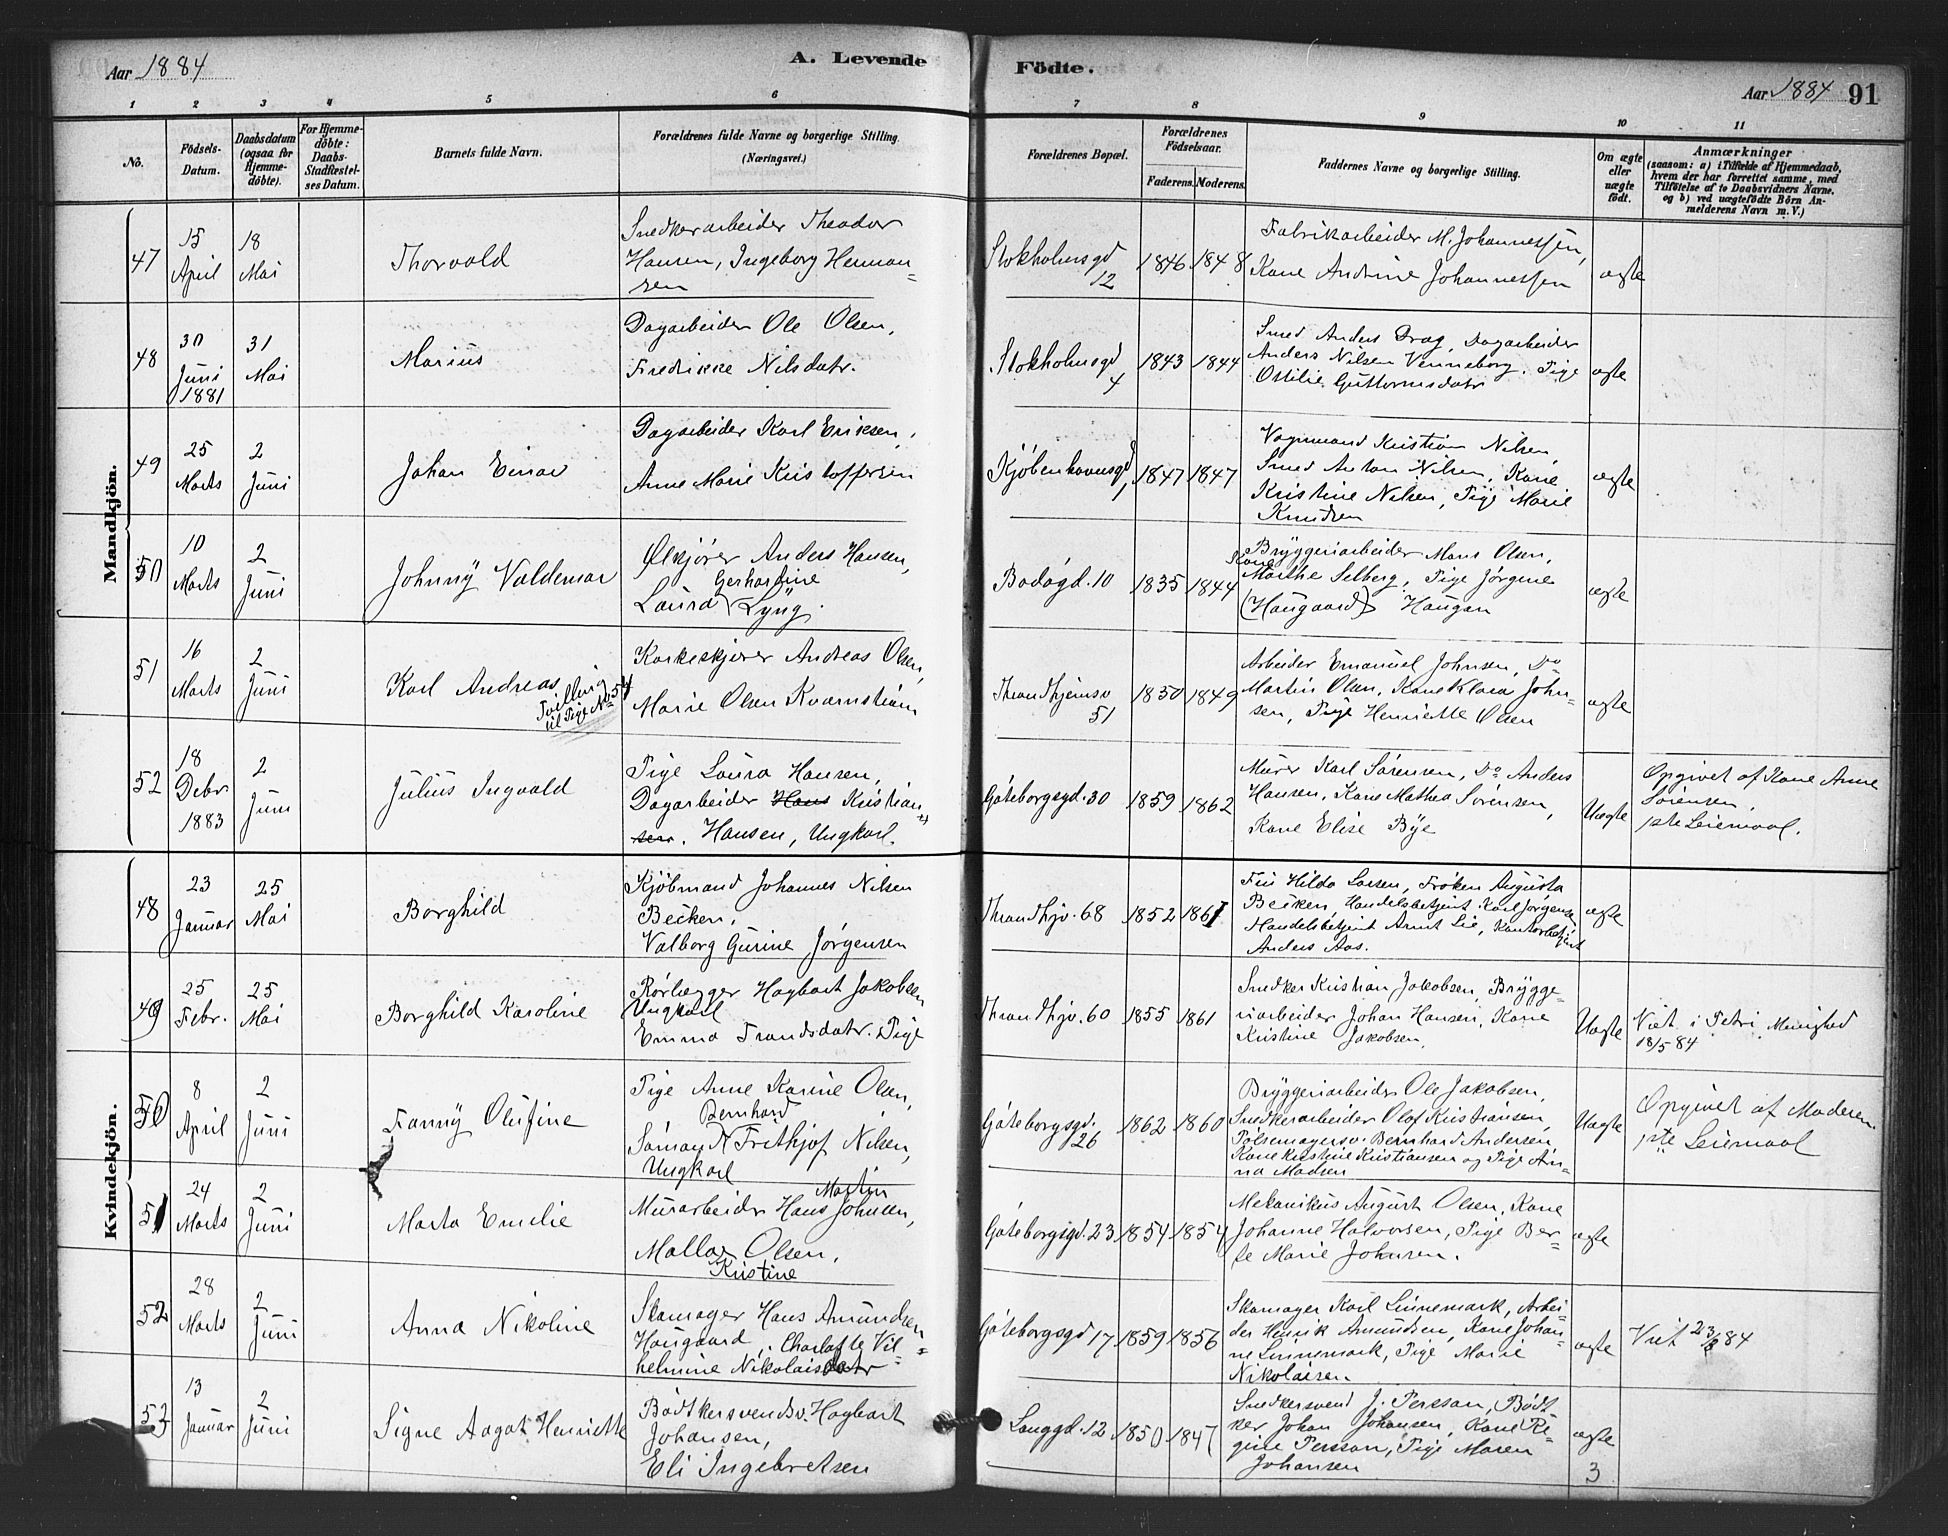 Aar 1884
A. Levende
Födte.
Aar 1884 91
1 2 3 4 5 6 7 8 9 10 11
No.
Födsels-
Datum.
Daabsdatum
(ogsaa for
Hjemme-
döbte).
For Hjemme-
döbte:
Daabs-
Stadfæstel-
ses Datum.
Barnets fulde Navn.
Forældrenes fulde Navne og borgerlige Stilling.
(Næringsvei.)
Forældrenes Bopæl.
Forældrenes
Födselsaar.
Faderens. Moderens.
Faddernes Navne og borgerlige Stilling.
Om ægte
eller
uægte
födt.
Anmærkninger
(saasom: a) i Tilfælde af Hjemmedaab,
hvem der har forrettet samme, med
Tilföielse af to Daabsvidners Navne,
og b) ved uægtefödte Börn An-
melderens Navn m. V.)
Mandkjön.
47
15
April
18
Mai
Thorvald
Snedkerarbeider Theodor
Hansen, Ingeborg Herman-
sen
Stokholmsgd
12
1846 1848
Fabrikarbeider M. Johannessen,
Kone Andrine Johannessen
ægte
48
30
Juni
1881
31
Mai
Marius
Dagarbeider Ole Olsen,
Fredrikke Nilsdatr.
Stokholmsgd
4
1843 1844
Smed Anders Drag, Dagarbeider
Anders Nilsen Venneborg, Pige
Ottilie Guttormsdatr
ægte
49
25
Marts
2
Juni
Johan Einar
Dagarbeider Karl Eriksen,
Anne Marie Kristoffersen
Kjöbenhavnsgd
1
1847 1847
Vognmand Kristian Nilsen,
Smed Anton Nilsen, Kone
Kristine Nilsen, Pige Marie
Knudsen
ægte
50
10
Marts
2
Juni
Johnny Valdemar
Ølkjører Anders Hansen,
Gerhardine
Laura Lyng.
Bodøgd. 10
1835 1844
Bryggeriarbeider Mons Olsen,
Kone
Marthe Selberg, Pige Jørgine
(Haugaard) Haugan
ægte
51
16
Marts
2
Juni
Karl Andreas
Tvilling
til Pige No 54
Korkeskjører Andreas Olsen,
Marie Olsen Kvarnstrøm
Throndhjemsv
51
1850 1849
Arbeider Emanuel Johnsen, Do
Martin Olsen, Kone Klara John-
sen, Pige Henriette Olsen
ægte
52
18
Debr
1883
2
Juni
Julius Ingvald
Pige Laura Hansen,
Dagarbeider Hans Kristian
sen. Hansen, Ungkarl.
Göteborgsgd. 30
1859 1862
Murer Karl Sørensen, Do Anders
Hansen, Kone Mathea Sørensen,
Kone Elise Bye
Uægte
Opgivet af Kone Anne
Sørensen.
1ste Leiemaal.
Kvindekjön.
48
23
Januar
25
Mai
Borghild
Kjöbmand Johannes Nilsen
Becken,
Valborg Gurine Jørgensen
Throndhjv. 68
1852 1861
Fru Hilda Larsen, Frøken Augusta
Becken, Handelsbetjent Karl Jørgensen
Handelsbetjent Arnt Lie, Kontorbetjent
Anders Aas.
ægte
49
25
Febr.
25
Mai
Borghild Karoline
Rørlægger Hagbart Jakobsen
Ungkarl
Emma Frandsdatr. Pige
Throndhjv. 60
1855 1861
Snedker Kristian Jakobsen, Brygge-
riarbeider Johan Hansen, Kone
Kristine Jakobsen.
Uægte
Viet i Petri Menighed
18/5 84
50
8
April
2
Juni
Fanny Olufine
Pige Anne Karine Olsen,
Bernhard
Sømand Frithjof Nilsen,
Ungkarl
Göteborgsgd.
26
1862 1860
Bryggeriarbeider Ole Jakobsen,
Snedkerarbeider Olaf Kristiansen,
Pølsemagersv. Bernhard Andersen
Kone Kristine Kristiansen og Pige An-
na Madsen
Uægte
Opgivet af Moderen.
1ste Leiemaal
51
24
Marts
2
Juni
Marta Emelie
Martin
Murarbeider Hans Johnsen,
Olsen,
Kristine
Göteborgsgd. 23
1854 1854
Mekanikus August Olsen, Kone
Johanne Halvorsen, Pige Ber-
te Marie Johnsen.
ægte
52
28
Marts
2
Juni
Anna Nikoline
Skomager Hans Amundsen
Haugaard, Charlotte Vil-
helmine Nikolaisdatr
Göteborgsgd 17
1859 1856
Skomager Karl Linnemark, Arbei-
der Henrik Amundsen, Kone Johan-
ne Linnemark, Pige Marie
Nikolaisen
ægte
53
13
Januar
2
Juni
Signe Aagot Henriette
Bødtkersvendsv. Hagbart
Johansen,
Eli Ingebretsen
Langgd. 12
1850 1847
Snedkersvend J. Persson, Bödt
ker Johan Johansen, Kone Re-
gine Persson, Pige Maren
Johansen
ægte
3